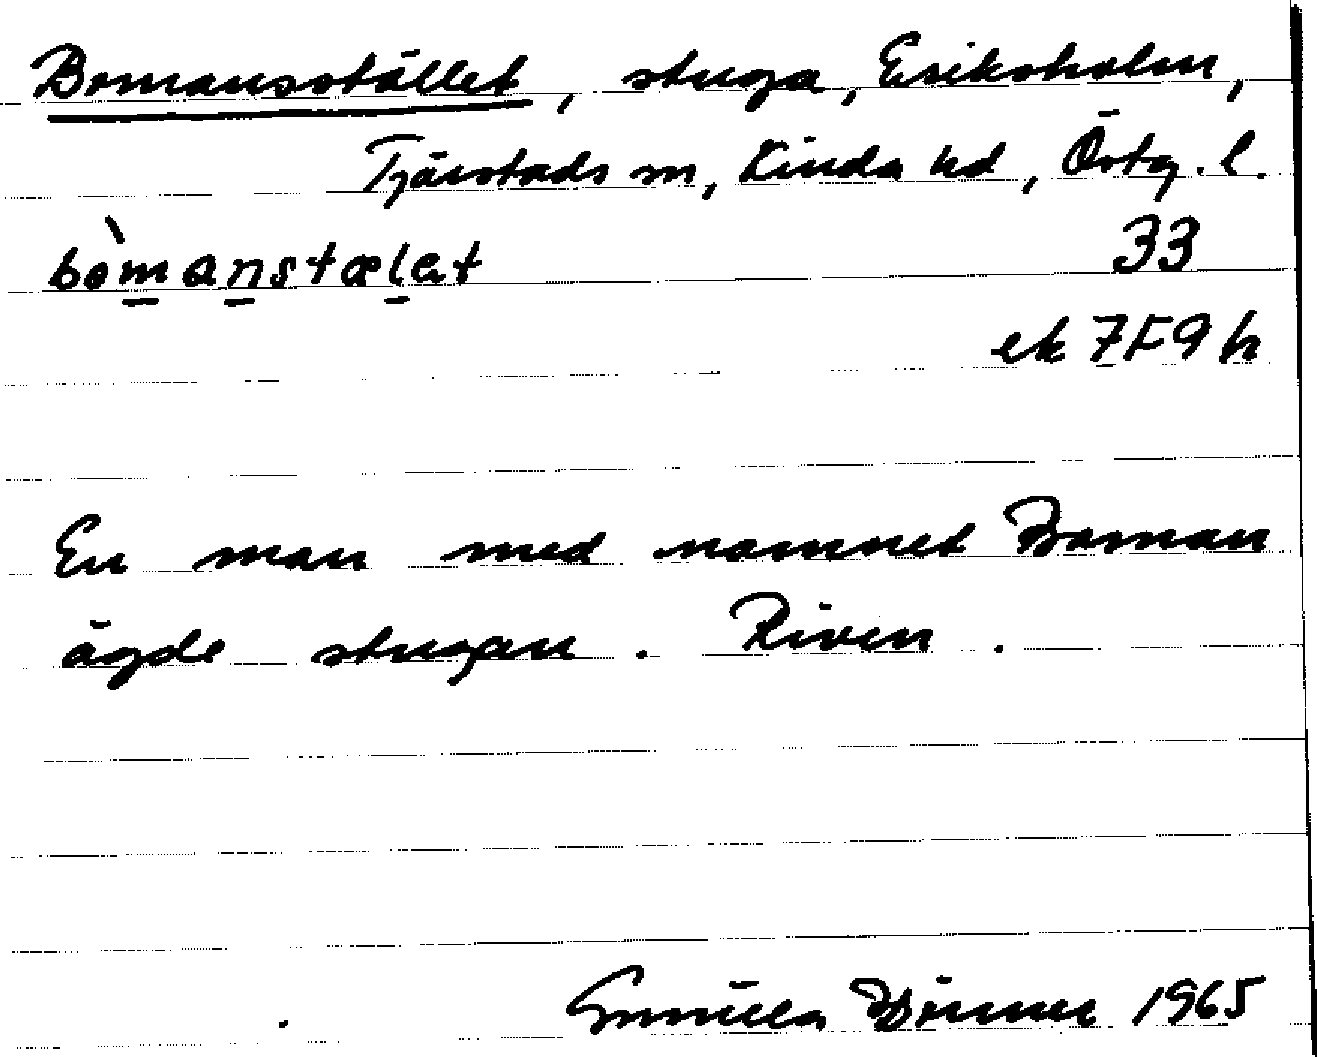 Bomansstället, stuga, Eriksholm,
Tjärstads sn, Kinda hd, Östg. l.
bòmanstælet 33
ek 7F9h
En man med namnet Boman
ägde stugan. Riven.
Gunilla 1965